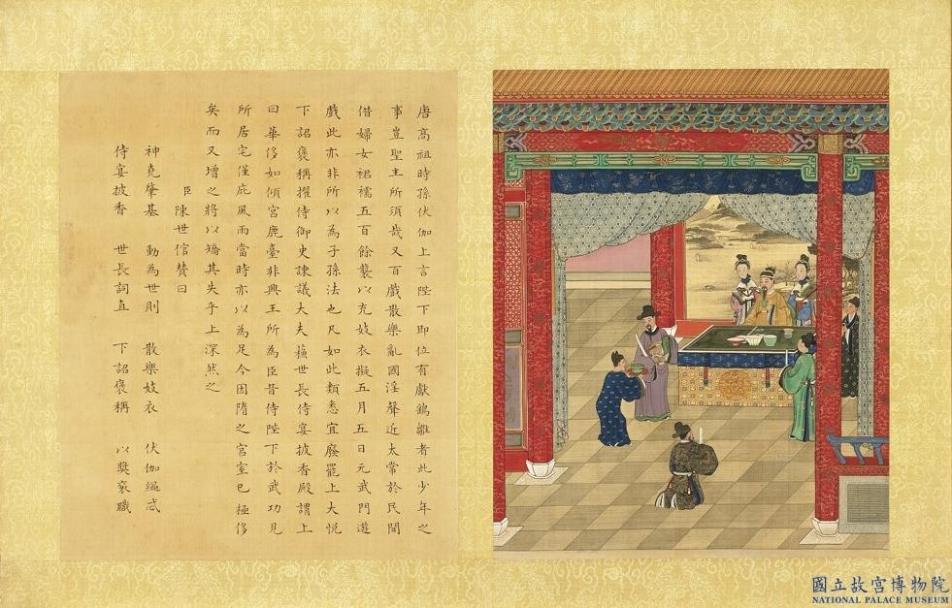 唐高祖時孫伏伽上言陛下即位有獻鷂雛者此少年之
事豈聖主所須哉又百戲散樂亂國淫聲近太常於民間
借婦女裙襦五百餘襲以充妓衣擬五月五日元武門遊
戲此亦非所以為子孫法也凡如此類悉宜廢罷上大悅
下詔褒稱擢侍御史諫議大夫蘓世長侍宴披香殿謂上
曰華侈如傾宮鹿臺非興王所為臣昔侍陛下於武功見
所居宅僅庇風雨當時亦以為足今因隋之宮室已極侈
矣而又增之將以矯其失乎上深然之
臣陳世倌贊曰
神堯肇基 動為世則 散樂妓衣 伏伽繩忒
侍宴披香 世長詞直 下詔褒稱 以獎袞職
國立故宮博物院
NATIONAL PALACE MUSEUM